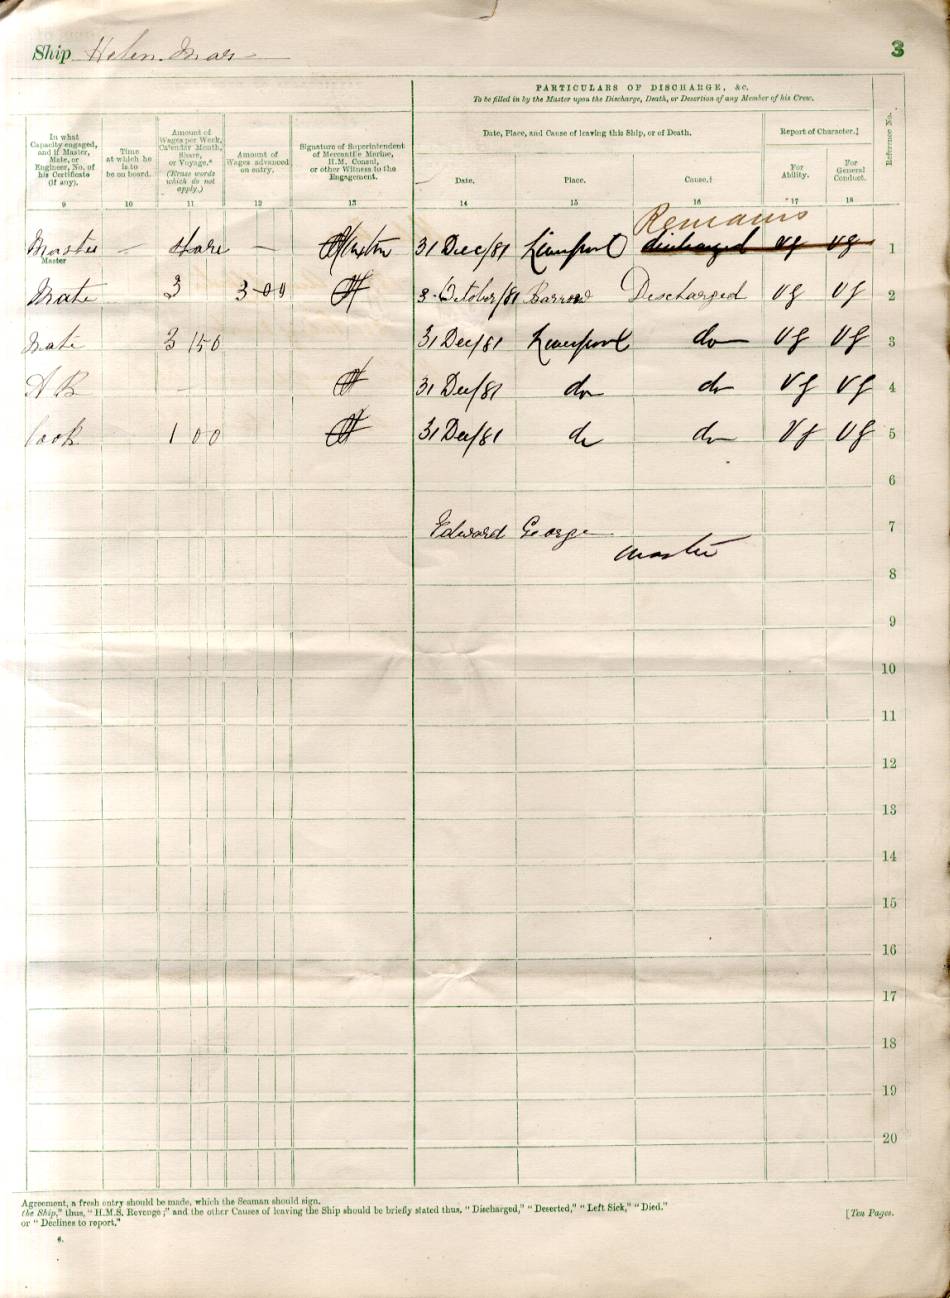 Ship Helen Mar 3
PARTICULARS OF DISCHARGE, &c.
To be filled in by the Master upon the Discharge, Death, or Desertion of any Member of his Crew.
In what Capacity engaged, and if Master, Mate, or Engineer, No. of his Certificate (if any).
Time at which he is to be on board.
Amount of Wages per Week, Calendar Month, Share, or Voyage.* (Erase words which do not apply.)
Amount of Wages advanced on entry.
Signature of Superintendent of Mercantile Marine, H.M. Consul, or other Witness to the Engagement.
Date, Place, and Cause of leaving this Ship, or of Death.
Report of Character.‡
Date. Place. Cause.† For Ability. For General Conduct.
Reference No.
9 10 11 12 13 14 15 16 17 18
Remains
Master — Share — 31 Dec/81 Liverpool discharged Vg Vg 1
Master
Mate 3 3-00 3 October/81 Barrow Discharged Vg Vg 2
Mate 3 15 0 31 Dec/81 Liverpool do Vg Vg 3
A B — 31 Dec/81 do do Vg Vg 4
Cook 1 0 0 31 Dec/81 do do Vg Vg 5
6
Edward George 7
Master
8
9
10
11
12
13
14
15
16
17
18
19
20
Agreement, a fresh entry should be made, which the Seaman should sign.
the Ship," thus, "H.M.S. Revenge;" and the other Causes of leaving the Ship should be briefly stated thus, "Discharged," "Deserted," "Left Sick," "Died."
or "Declines to report." [Ten Pages.